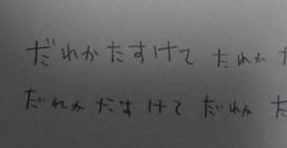 だれかたすけて だれか
だれかだすけて だれか た